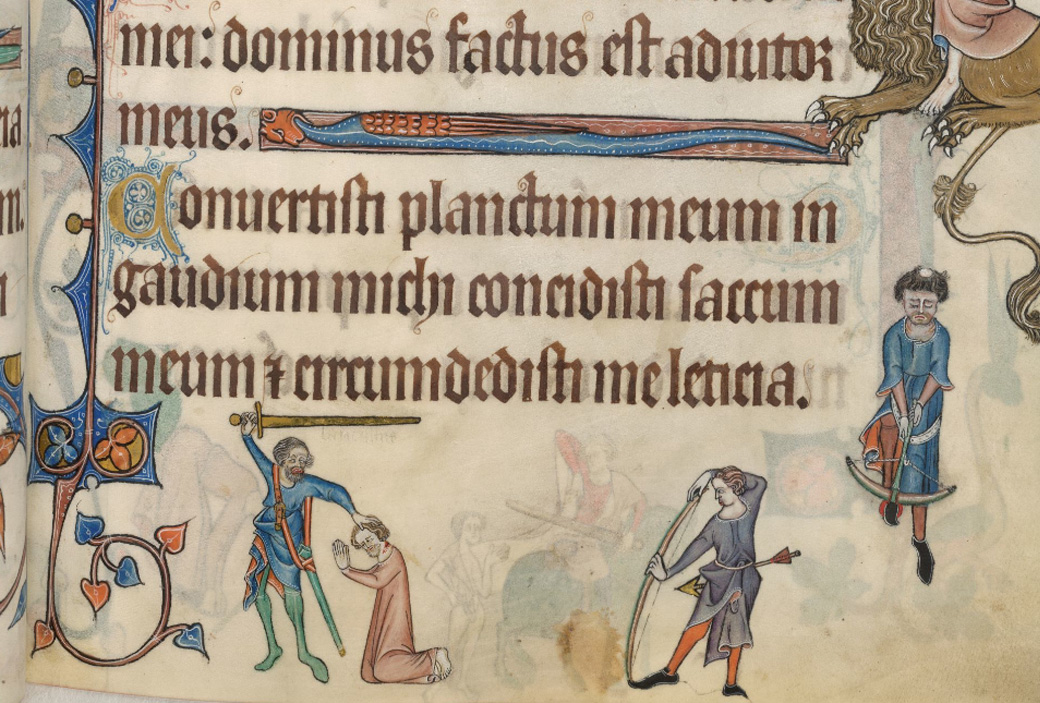 mei: dominus factus est adiutor
meus.
Conuertisti planctum meum in
gaudium michi concidisti saccum
meum ⁊ circumdedisti me leticia.